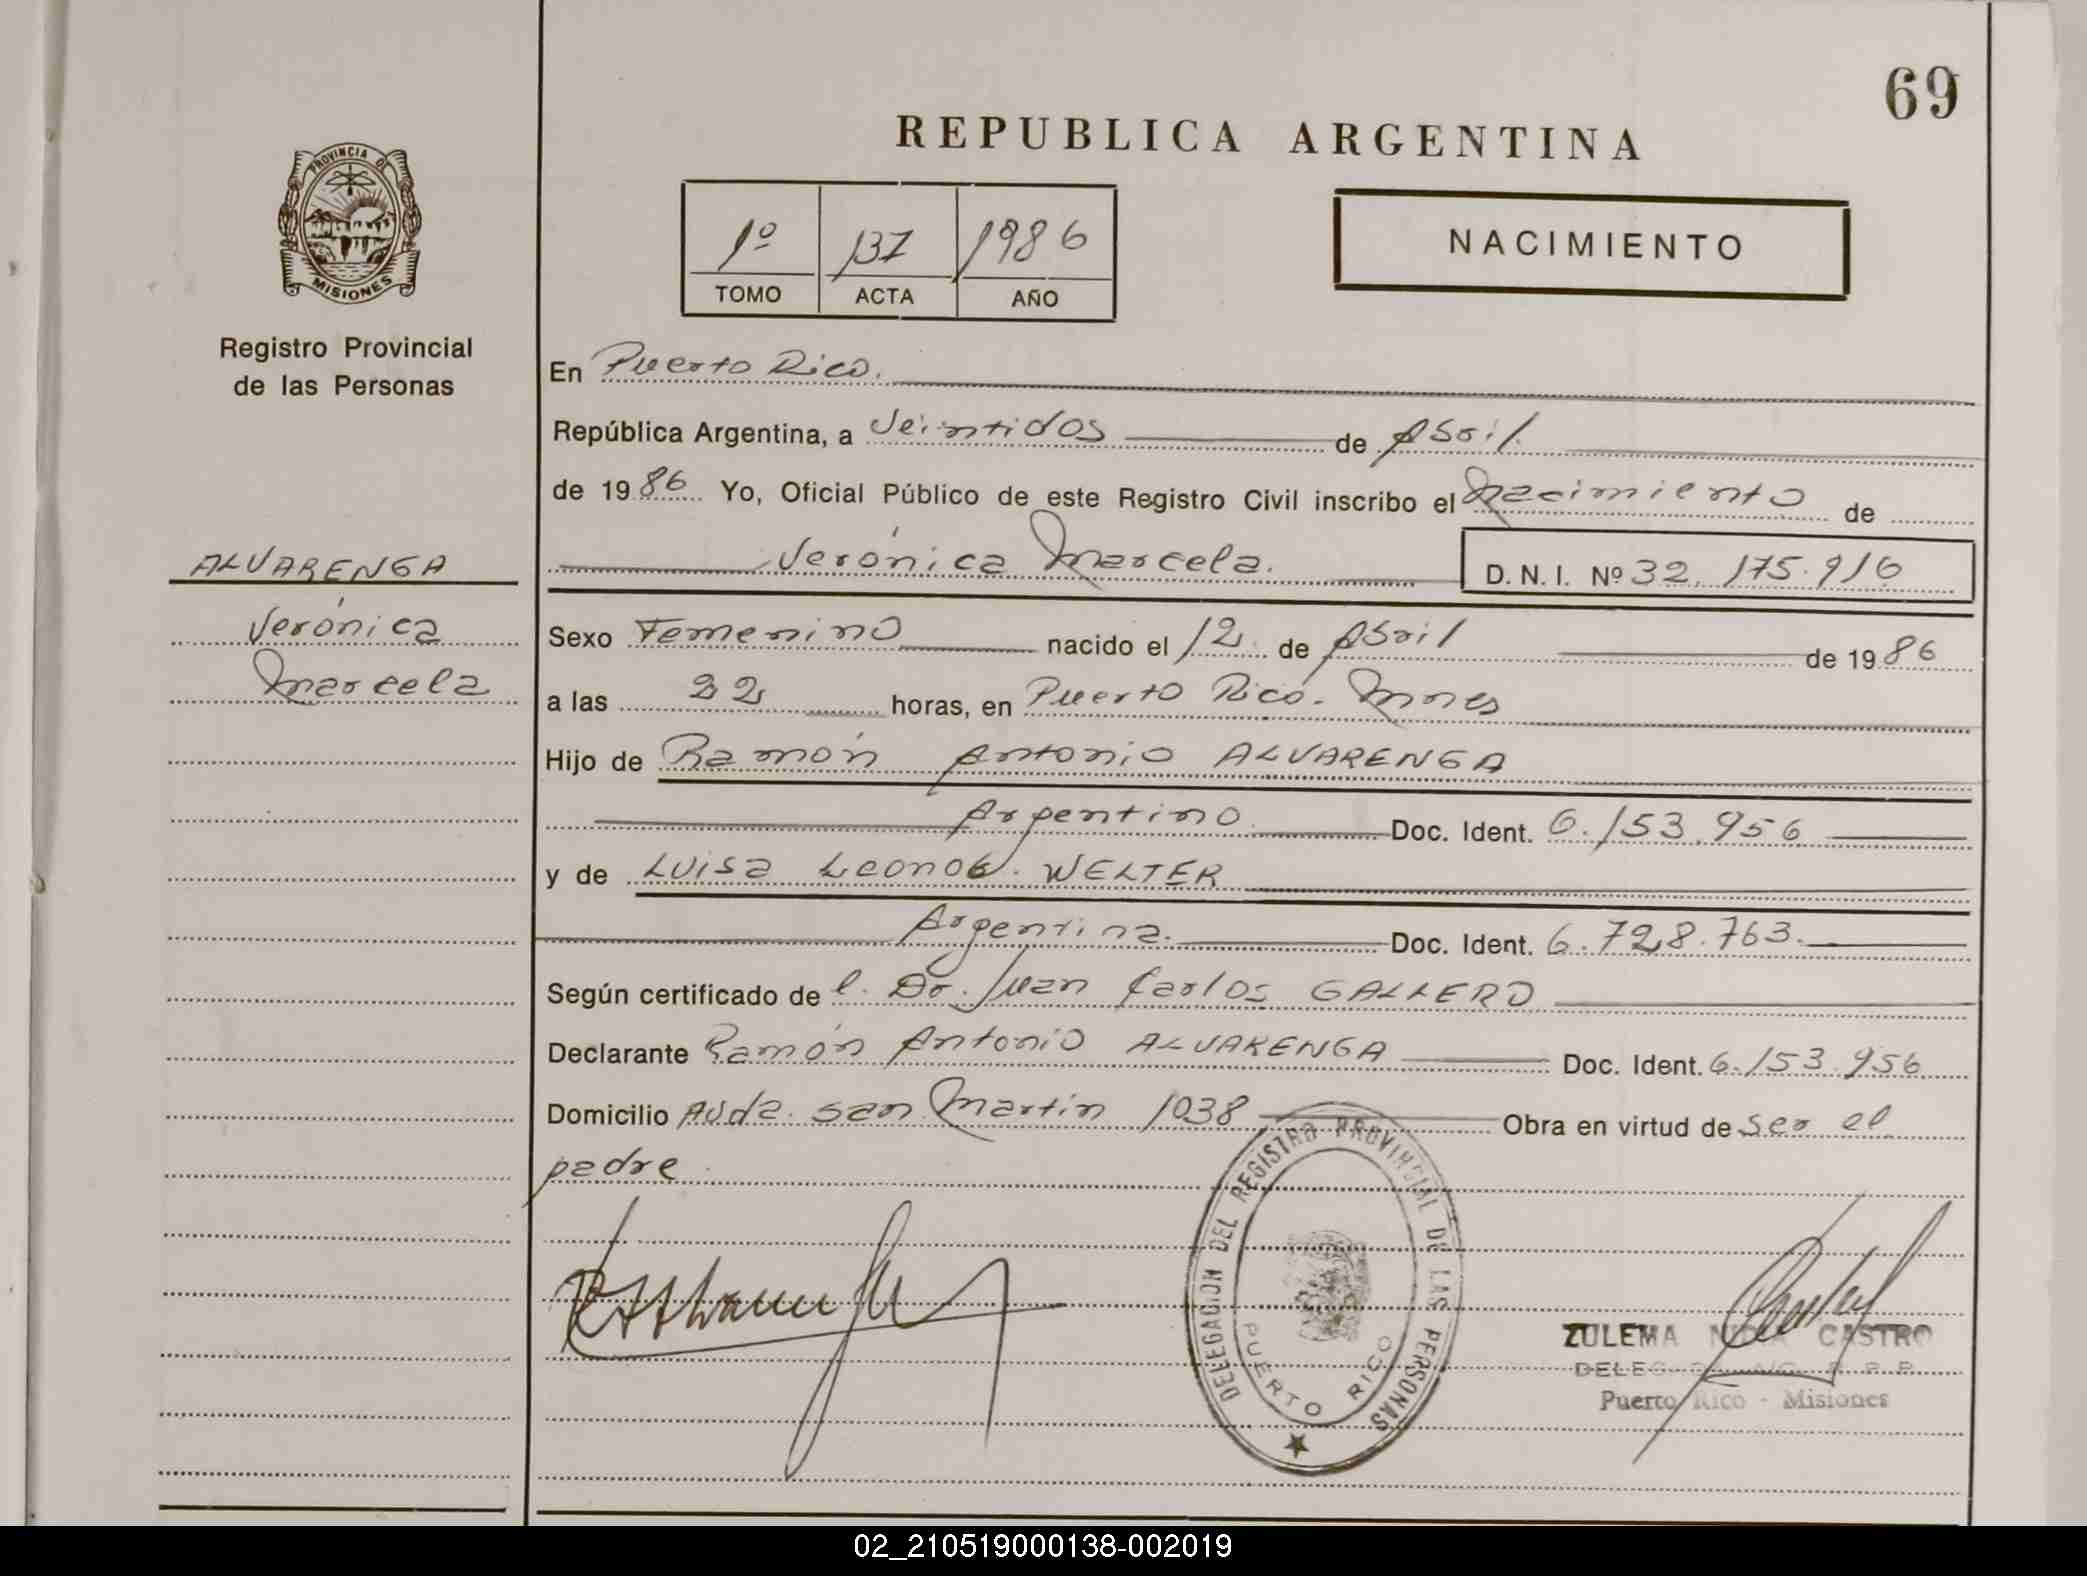 69
REPUBLICA ARGENTINA
PROVINCIA DE
MISIONES
Registro Provincial
de las Personas
1º 137 1986
TOMO ACTA AÑO
NACIMIENTO
En Puerto Rico.
República Argentina, a Veintidos de Abril.
de 1986 Yo, Oficial Público de este Registro Civil inscribo el Nacimiento de
Verónica Marcela. D. N. I. Nº 32.175.916
ALVARENGA
Verónica
Marcela
Sexo Femenino nacido el 12 de Abril de 1986
a las 22 horas, en Puerto Rico. Mnes
Hijo de Ramón Antonio ALVARENGA
Argentino Doc. Ident. 6.153.956
y de Luisa Leonor WELTER
Argentina. Doc. Ident. 6.728.763.
Según certificado de l. Dr. Juan Carlos GALLERO
Declarante Ramón Antonio ALVARENGA Doc. Ident. 6.153.956
Domicilio Avda. San Martín 1038 Obra en virtud de ser el
padre
DELEGACION DEL REGISTRO PROVINCIAL DE LAS PERSONAS
PUERTO RICO
ZULEMA CASTRO
Puerto Rico - Misiones
02_210519000138-002019